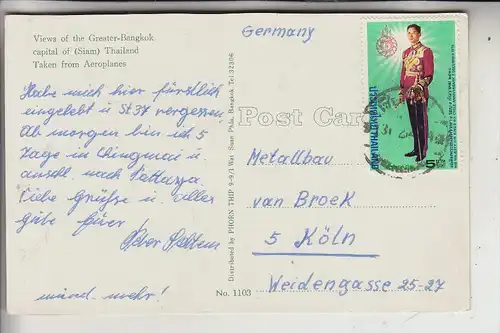 Views of the Greater-Bangkok
capital of (Siam) Thailand
Taken from Aeroplanes
Germany
Habe mich hier fürstlich
eingelebt u St 37 vergessen,
Ab morgen bin ich 5
Tage in Chingmai u
anschl. nach Pattaya.
Liebe Grüße u. alles
gute
mehr!
Post Card
Metallbau
van Broek
5 Köln
Weidengasse 25-27
Distributed by PHORN THIP 9-9/1 Wat Suan Phlu. Bangkok Tel. 32206
No. 1103
5